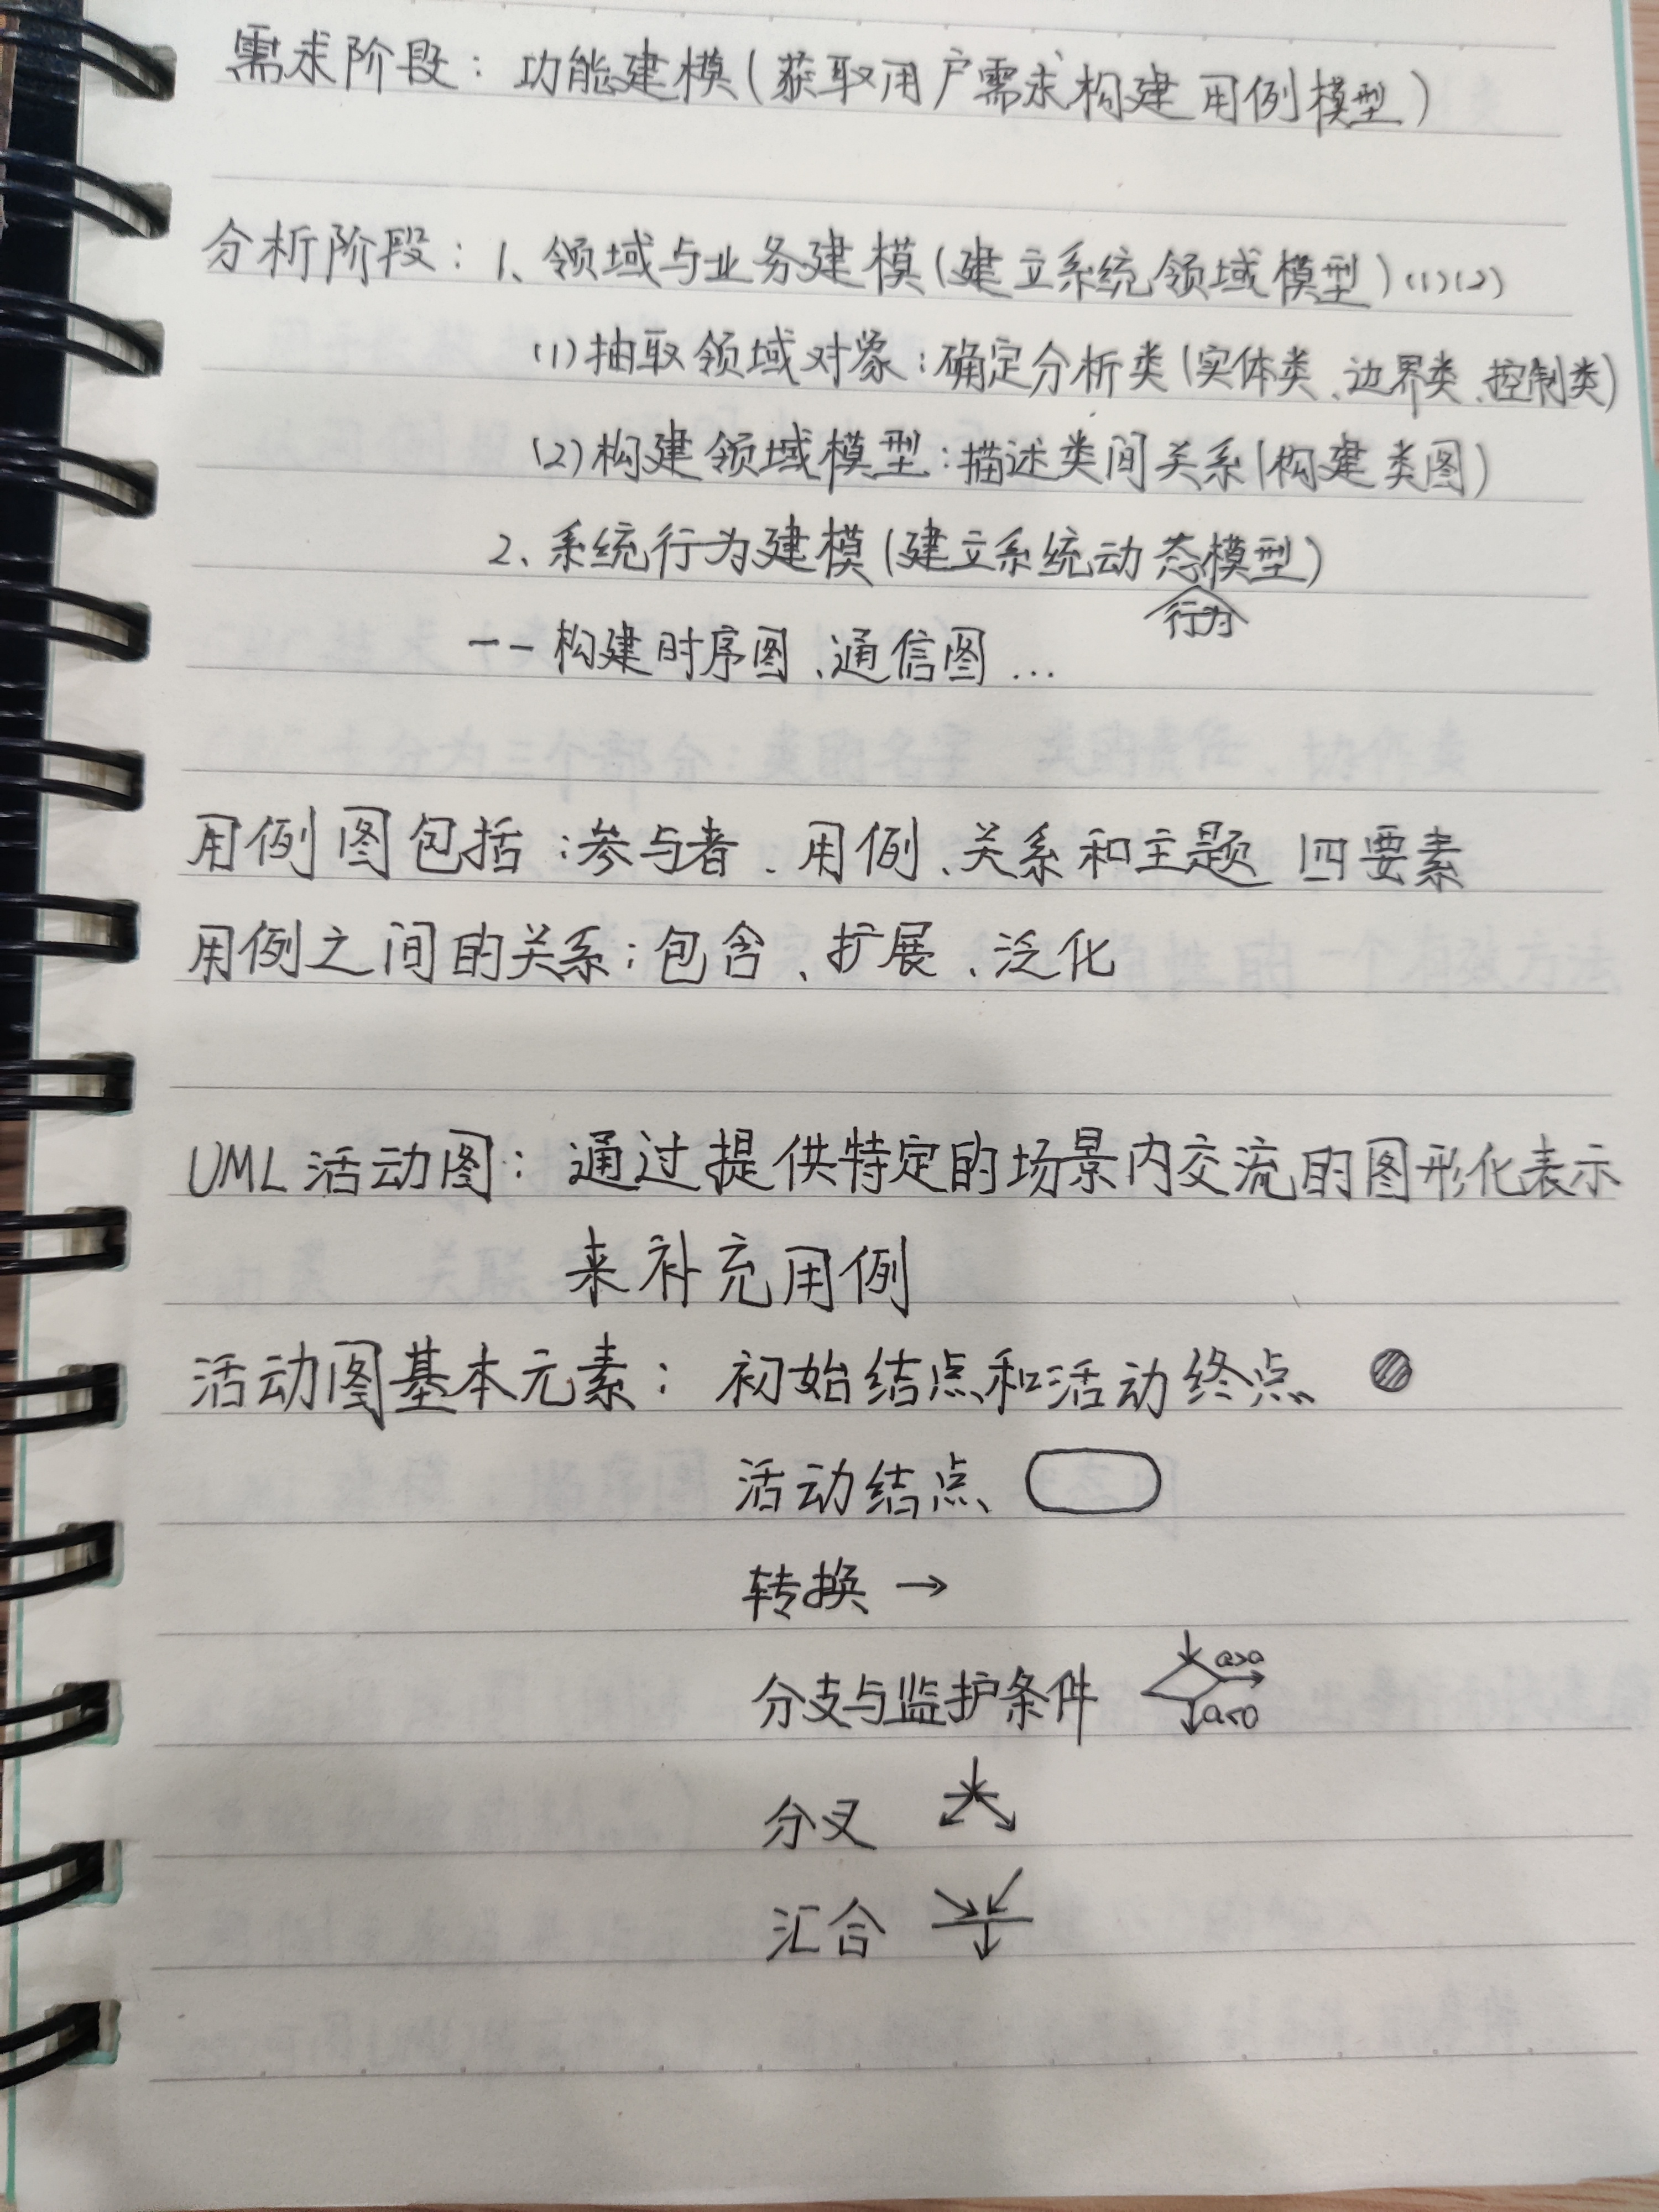 需求阶段：功能建模(获取用户需求构建用例模型)
分析阶段：1、领域与业务建模(建立系统领域模型)(1)(2)
(1)抽取领域对象：确定分析类(实体类、边界类、控制类)
(2)构建领域模型：描述类间关系(构建类图)
2、系统行为建模(建立系统动态模型)
行为
--构建时序图、通信图...
用例图包括：参与者、用例、关系和主题 四要素
用例之间的关系：包含、扩展、泛化
UML活动图：通过提供特定的场景内交流的图形化表示
来补充用例
活动图基本元素：初始结点和活动终点
活动结点
转换 →
分支与监护条件
a>0
a<0
分叉
汇合